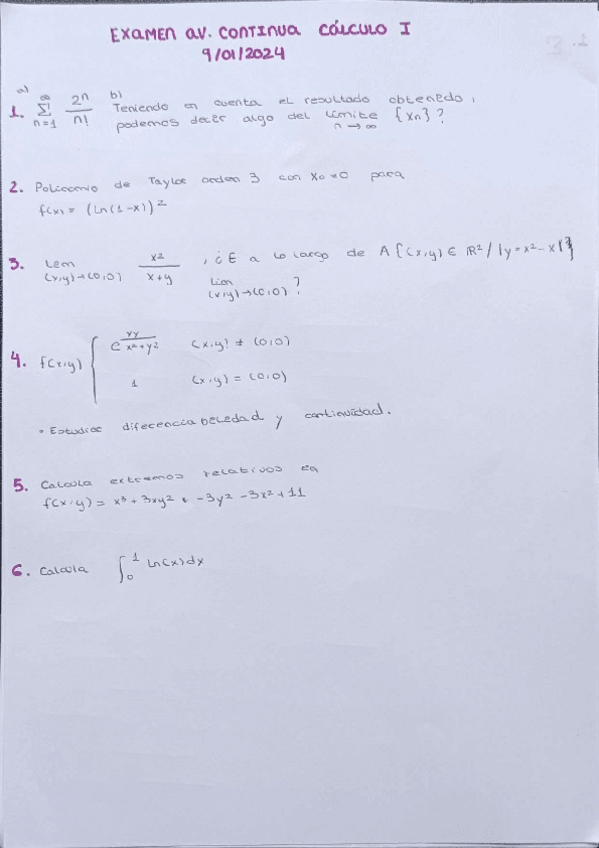 EXAMEN AV. CONTINUA CÁLCULO I
9/01/2024
1. a) ∞ Σ n=1 2^n / n! b) Teniendo en cuenta el resultado obtenido,
podemos decir algo del límite n→∞ {xn}?
2. Polinomio de Taylor orden 3 con x0=0 para
f(x)= (ln(1-x))^2
3. lim (x,y)→(0,0) x^2 / x+y , ¿E a lo largo de A{(x,y)∈ℝ^2/ y=x^2-x}
lim (x,y)→(0,0) ?
4. f(x,y) { e^(xy / x^2+y^2) (x,y) ≠ (0,0)
1 (x,y) = (0,0)
• Estudiar diferenciabilidad y continuidad.
5. Calcula extremos relativos en
f(x,y) = x^3 + 3xy^2 -3y^2 -3x^2 + 11
6. Calcula ∫ 0 1 ln(x)dx